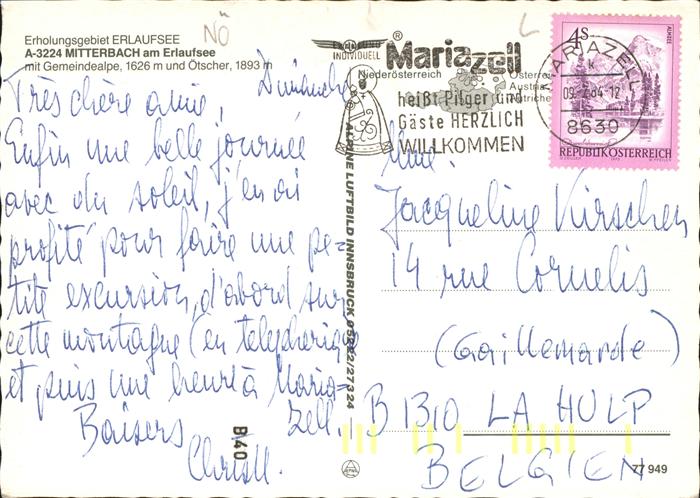 Erholungsgebiet ERLAUFSEE
A-3224 MITTERBACH am Erlaufsee
mit Gemeindealpe, 1626 m und Ötscher, 1893 m
NÖ
L
Niederösterreich
Österrei
Austria
Autriche
INDIVIDUELL
Mariazell
heißt Pilger und
Gäste HERZLICH
WILLKOMMEN
MARIAZELL
k
09.-2.84-12
8630
4S
ALMSEE
REPUBLIK ÖSTERREICH
Dimanche
Très chère amie,
Enfin une belle journée
avec du soleil, j'en ai
profité pour faire une pe-
tite excursion, d'abord sur
cette montagne (en telepheriq
et puis une heure à Maria-
zell.
Baisers
ALPINE LUFTBILD INNSBRUCK, 05222/27324
B40
Mme.
Jacqueline Kirschen
14 rue Cornelis
(Gaillemarde)
B 1310 LA HULP
BELGIEN
77 949